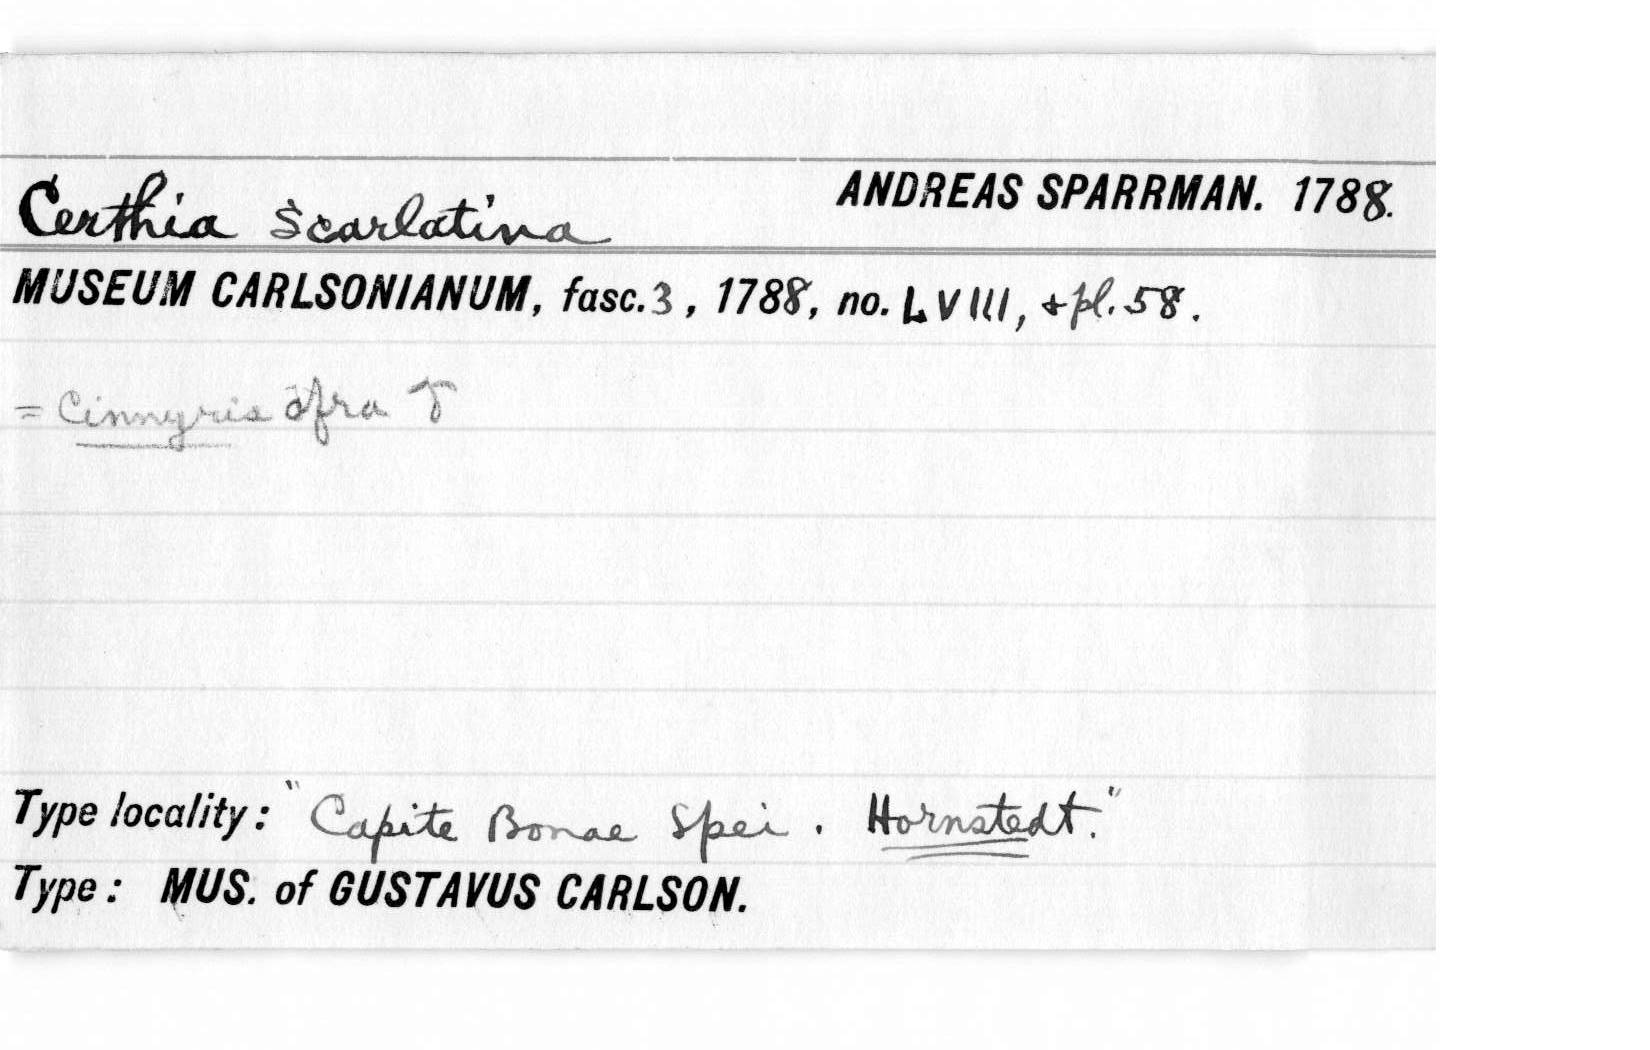 Certhia scarlatina
ANDREAS SPARRMAN. 1788.
MUSEUM CARLSONIANUM, fasc. 3, 1788, no. LVIII, + pl. 58.
= Cinnyris afra ♂
Type locality: "Capite Bonae Spei. Hornstedt."
Type: MUS. of GUSTAVUS CARLSON.